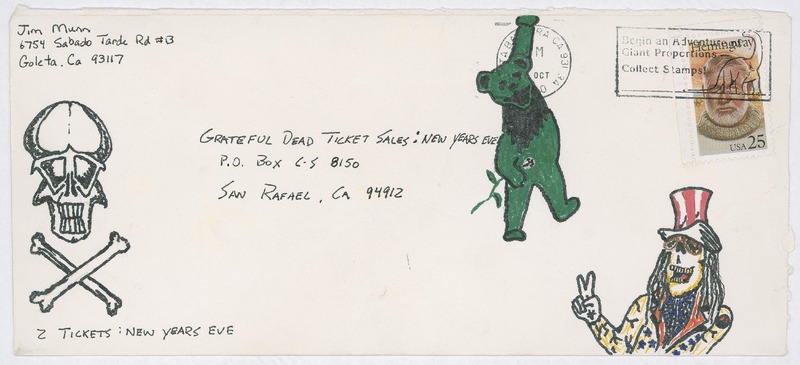 Jim Munn
6754 Sabado Tarde Rd #B
Goleta, Ca 93117
GRATEFUL DEAD TICKET SALES: NEW YEARS EVE
P.O. BOX C-S 8150
SAN RAFAEL, CA 94912
2 TICKETS: NEW YEARS EVE
RA CA 931
M
OCT
Begin an Adventure of
Giant Proportions
Collect Stamps!
Hemingway
USA 25